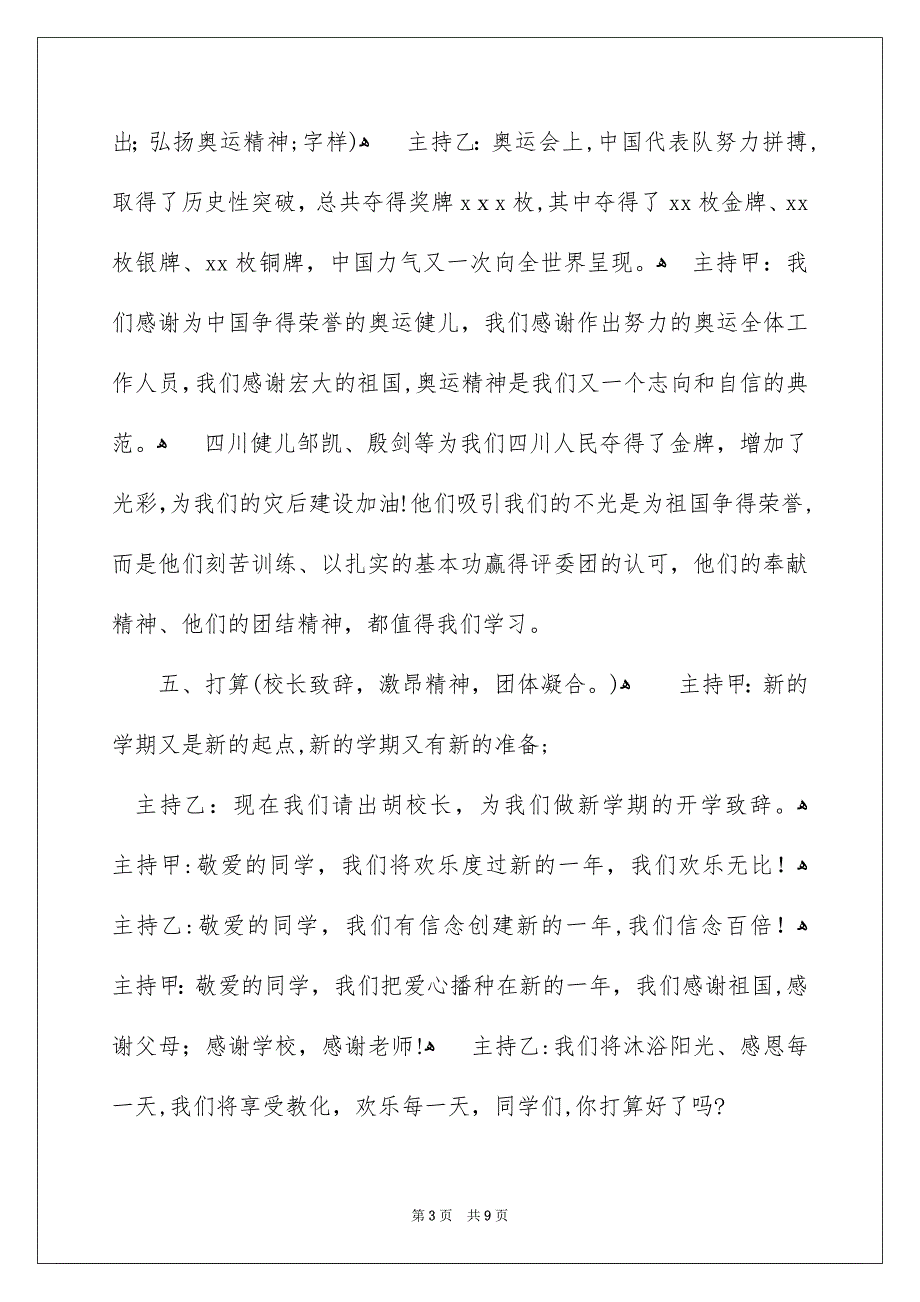 出; 弘扬奥运精神;字样)ﻫ　主持乙：奥运会上,中国代表队努力拼搏,
取得了历史性突破，总共夺得奖牌 x x x 枚,其中夺得了 xx 枚金牌、xx
枚银牌、xx 枚铜牌，中国力气又一次向全世界呈现。ﻫ　主持甲：我
们感谢为中国争得荣誉的奥运健儿，我们感谢作出努力的奥运全体工
作人员，我们感谢宏大的祖国,奥运精神是我们又一个志向和自信的典
范。ﻫ　四川健儿邹凯、殷剑等为我们四川人民夺得了金牌，增加了
光彩，为我们的灾后建设加油!他们吸引我们的不光是为祖国争得荣誉,
而是他们刻苦训练、以扎实的基本功赢得评委团的认可，他们的奉献
精神、他们的团结精神，都值得我们学习。
五、打算(校长致辞，激昂精神，团体凝合。)ﻫ　主持甲：新的
学期又是新的起点,新的学期又有新的准备;
主持乙：现在我们请出胡校长，为我们做新学期的开学致辞。ﻫ
主持甲:敬爱的同学，我们将欢乐度过新的一年，我们欢乐无比！ﻫ
主持乙:敬爱的同学，我们有信念创建新的一年,我们信念百倍！ﻫ
主持甲：敬爱的同学，我们把爱心播种在新的一年，我们感谢祖国,感
谢父母；感谢学校，感谢老师!ﻫ　主持乙:我们将沐浴阳光、感恩每
一天,我们将享受教化，欢乐每一天，同学们,你打算好了吗?
第 3 页 共 9 页